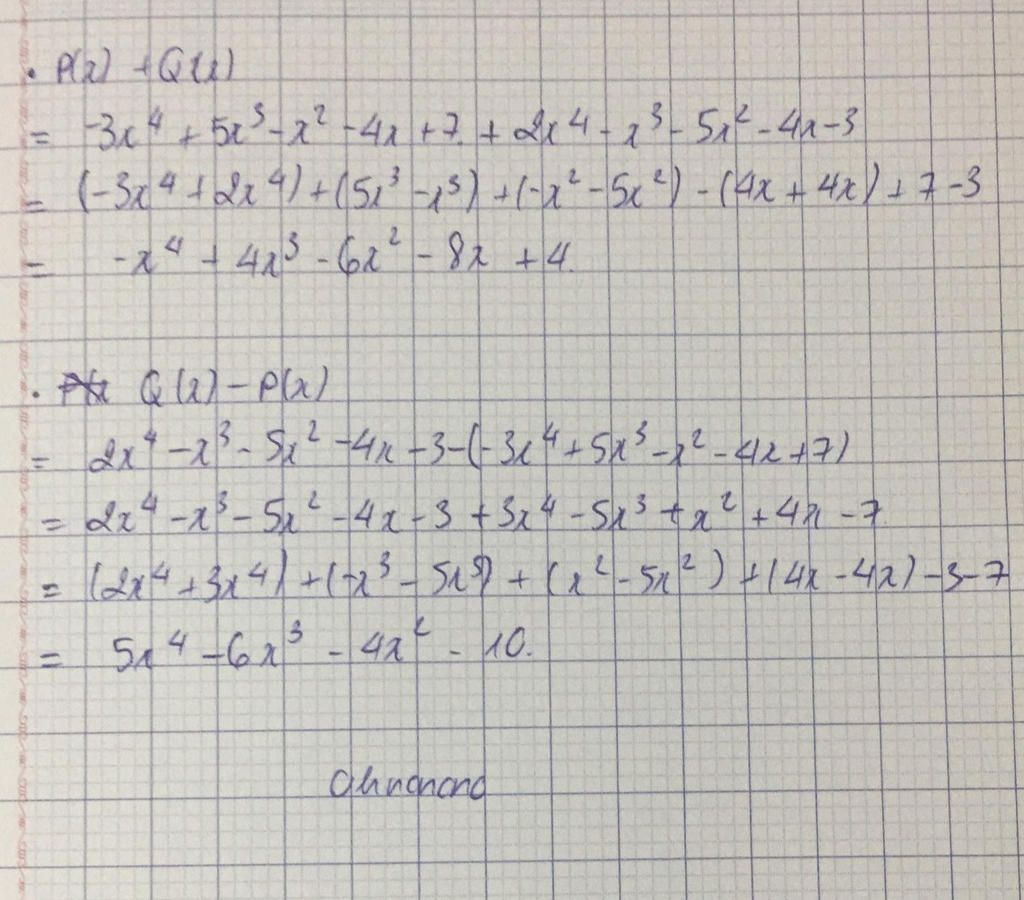 • P(x) + Q(x)
= -3x⁴ + 5x³ - x² - 4x + 7 + 2x⁴ - x³ - 5x² - 4x - 3
= (-3x⁴ + 2x⁴) + (5x³ - x³) + (-x² - 5x²) - (4x + 4x) + 7 - 3
= -x⁴ + 4x³ - 6x² - 8x + 4.
• Q(x) - P(x)
= 2x⁴ - x³ - 5x² - 4x - 3 - (-3x⁴ + 5x³ - x² - 4x + 7)
= 2x⁴ - x³ - 5x² - 4x - 3 + 3x⁴ - 5x³ + x² + 4x - 7
= (2x⁴ + 3x⁴) + (-x³ - 5x³) + (x² - 5x²) + (4x - 4x) - 3 - 7
= 5x⁴ - 6x³ - 4x² - 10.